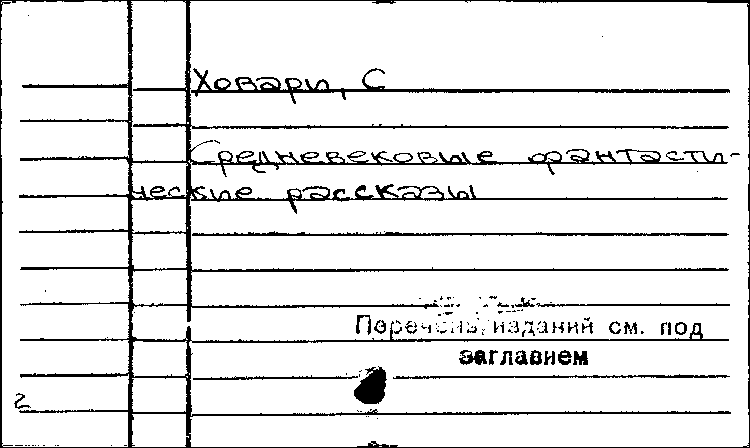 Ховари, С
Средневековые фантасти-
ческие рассказы
Перечень изданий см. под
заглавием